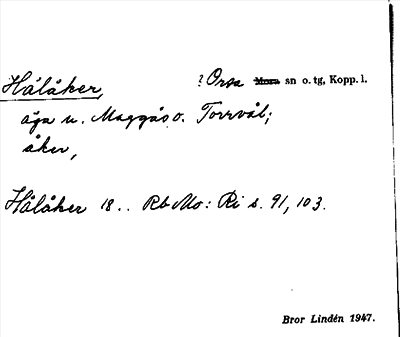 Hålåker, ? Orsa Mora sn o. tg, Kopp. l.
äga u. Maggås o. Torrvål;
åker,
Hålåker 18.. Rb Mo: Ri s. 91, 103.
Bror Lindén 1947.